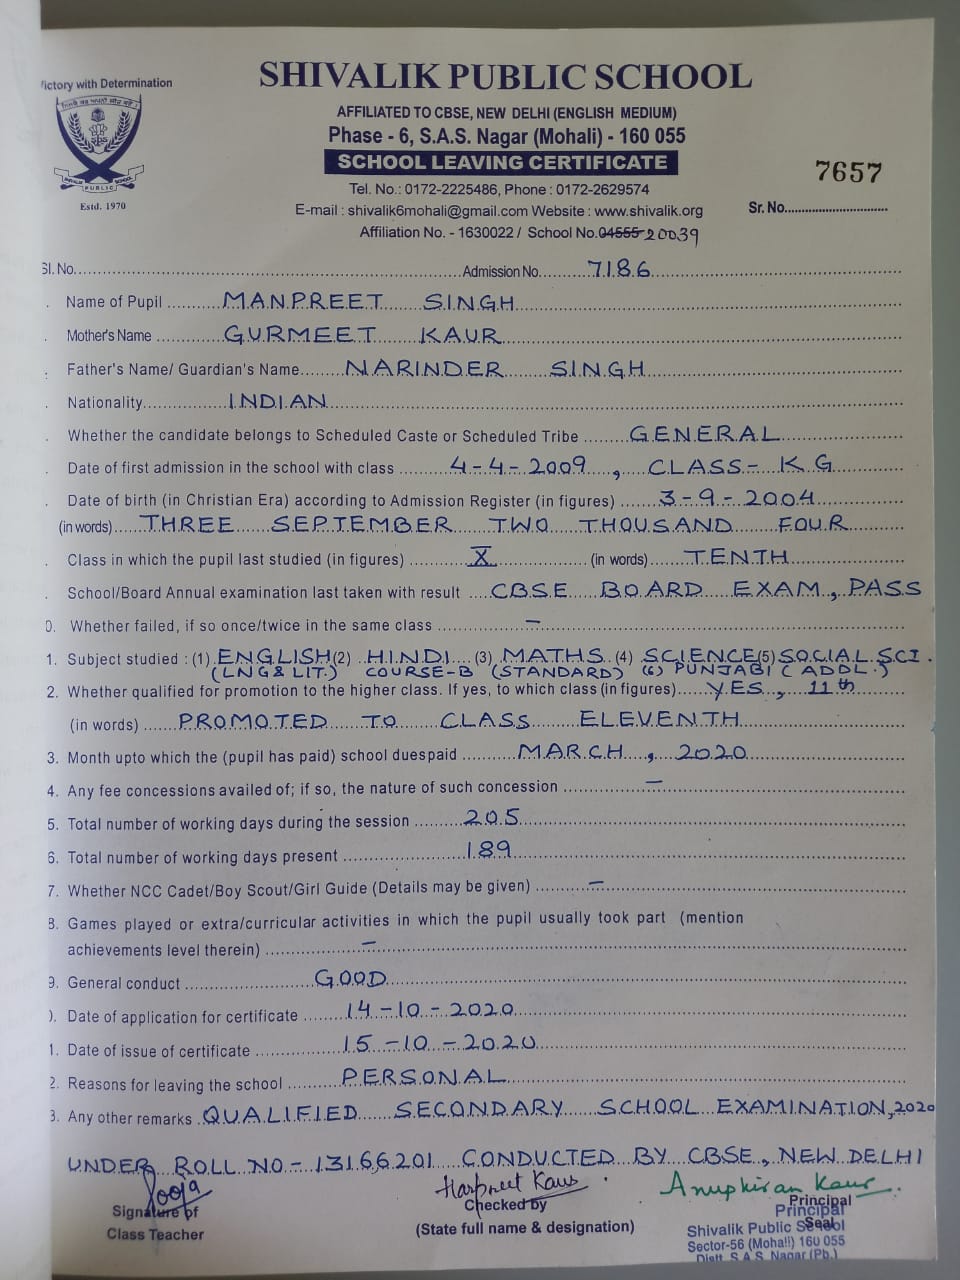 ictory with Determination
SHIVALIK PUBLIC SCHOOL
AFFILIATED TO CBSE, NEW DELHI (ENGLISH MEDIUM)
Phase - 6, S.A.S. Nagar (Mohali) - 160 055
SCHOOL LEAVING CERTIFICATE
7657
Tel. No.: 0172-2225486, Phone : 0172-2629574
Estd. 1970
E-mail : shivalik6mohali@gmail.com Website : www.shivalik.org
Sr. No.
Affiliation No. - 1630022 / School No.04555 20039
SI. No. Admission No. 7186
Name of Pupil MANPREET SINGH
Mother's Name GURMEET KAUR
Father's Name/ Guardian's Name NARINDER SINGH
Nationality INDIAN
Whether the candidate belongs to Scheduled Caste or Scheduled Tribe GENERAL
Date of first admission in the school with class 4-4-2009, CLASS- KG
Date of birth (in Christian Era) according to Admission Register (in figures) 3-9-2004
(in words) THREE SEPTEMBER TWO THOUSAND FOUR
Class in which the pupil last studied (in figures) X (in words) TENTH
School/Board Annual examination last taken with result CBSE BOARD EXAM, PASS
0. Whether failed, if so once/twice in the same class -
1. Subject studied : (1) ENGLISH (2) HINDI (3) MATHS (4) SCIENCE (5) SOCIAL SCI.
(LNG & LIT.) COURSE-B (STANDARD) (6) PUNJABI (ADDL.)
2. Whether qualified for promotion to the higher class. If yes, to which class (in figures) YES, 11th
(in words) PROMOTED TO CLASS ELEVENTH
3. Month upto which the (pupil has paid) school duespaid MARCH, 2020
4. Any fee concessions availed of; if so, the nature of such concession -
5. Total number of working days during the session 205
6. Total number of working days present 189
7. Whether NCC Cadet/Boy Scout/Girl Guide (Details may be given) -
8. Games played or extra/curricular activities in which the pupil usually took part (mention
achievements level therein) -
9. General conduct GOOD
). Date of application for certificate 14-10-2020
1. Date of issue of certificate 15-10-2020
2. Reasons for leaving the school PERSONAL
3. Any other remarks QUALIFIED SECONDARY SCHOOL EXAMINATION, 2020
UNDER ROLL NO - 13166201 CONDUCTED BY CBSE, NEW DELHI
Pooja Harpreet Kaur Anupkiran Kaur
Signature of Checked by Principal
Class Teacher (State full name & designation) Seal
Principal
Shivalik Public School
Sector-56 (Mohali) 160 055
Distt. S.A.S. Nagar (Pb.)